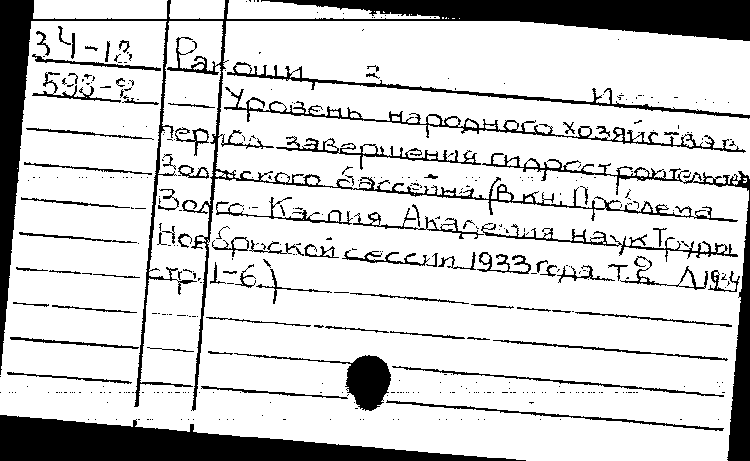 34-18 Ракоши, З
593-2 Уровень народного хозяйства в
период завершения гидростроительства
Волжского бассейна. (В кн: Проблема
Волго-Каспия. Академия наук Труды
Ноябрьской сессии 1933 года. Т. Л 1934
стр. 1-6.)